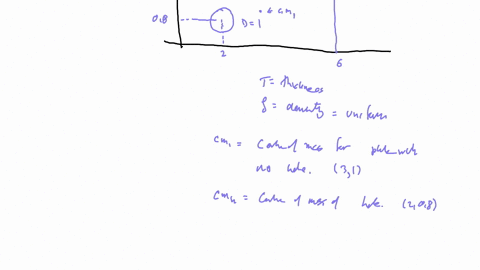 * cm₁
0,8 D=1
2 6
T = thickness
ρ = density = uniform
cm₁ = Centre of mass for plate with
no hole. (3,1)
cmₕ = Centre of mass of hole. (2,0.8)